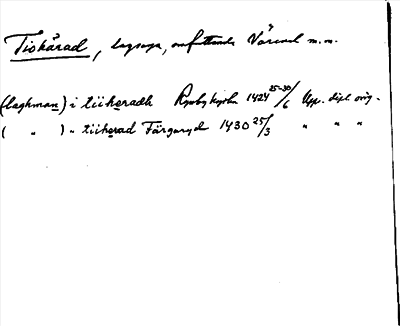 Tiohärad, lagsaga, omfattande Värend m.m.
(laghman) i tiiheradh Ryssby kyrka 1424 25-30/6 Upp. dipl. orig.
( " ) " tiiherad Färgaryd 1430 25/3 " " "